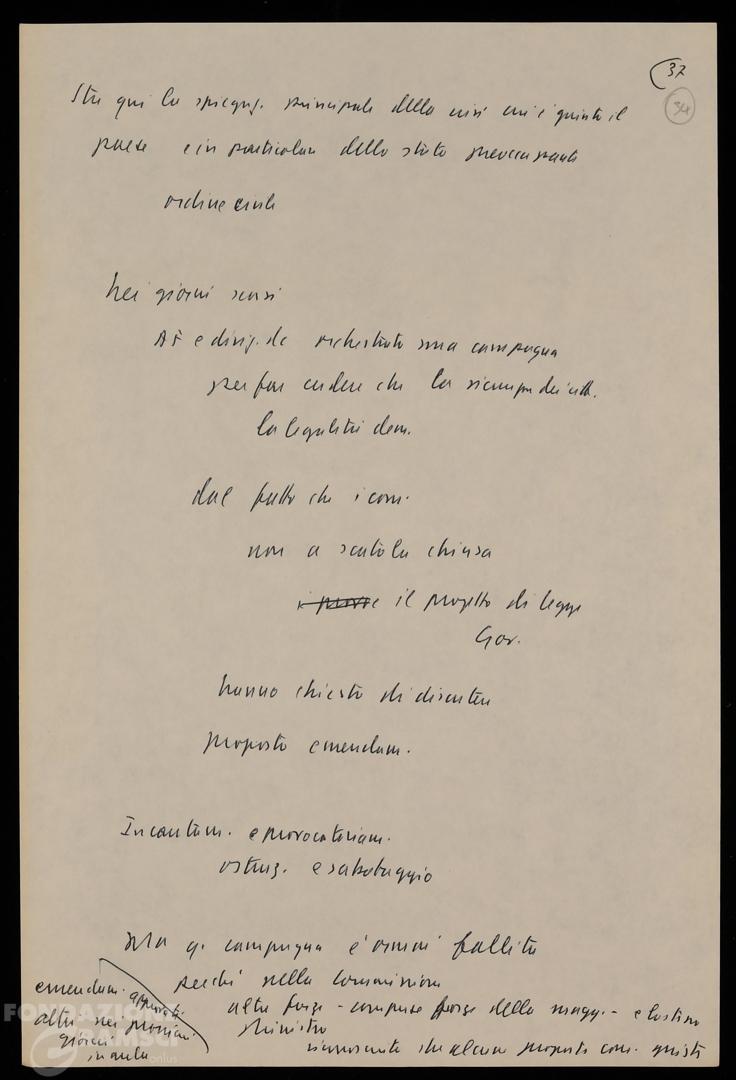 37
34
Sta qui la spiegaz. principale della crisi cui è giunto il
paese e in particolare dello stato preoccupante
ordine civile
Nei giorni scorsi
AF e dirig. dc orchestrato una campagna
per far credere che la sicurezza dei citt.
la legalità dem.
dal fatto che i com.
non a scatola chiusa
il progetto di legge
Gov.
hanno chiesto di discutere
proposto emendam.
Incautam. e provocatoriam.
ostruz. e sabotaggio
Ma q. campagna è ormai fallita
perché nella Commissione
altre forze - comprese forze della magg. - e lo stesso
Ministro
riconosciuto che alcune proposte com. giuste
emendam. approvati
altri nei prossimi
giorni
in aula
FONDAZIONE
GRAMSCI
onlus